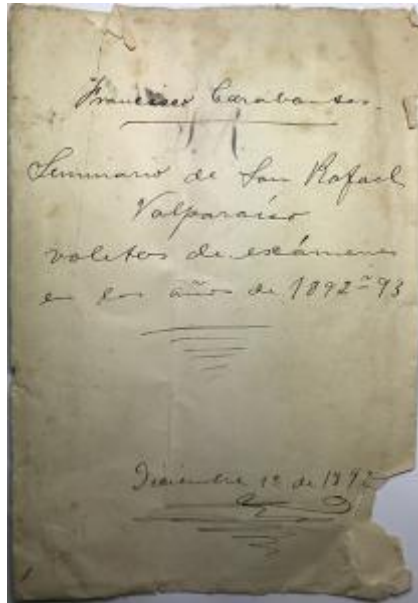 Francisco Carabantes.
Seminario de San Rafael
Valparaíso
voletos de exámenes
en los años de 1892-93
Diciembre 12 de 1892